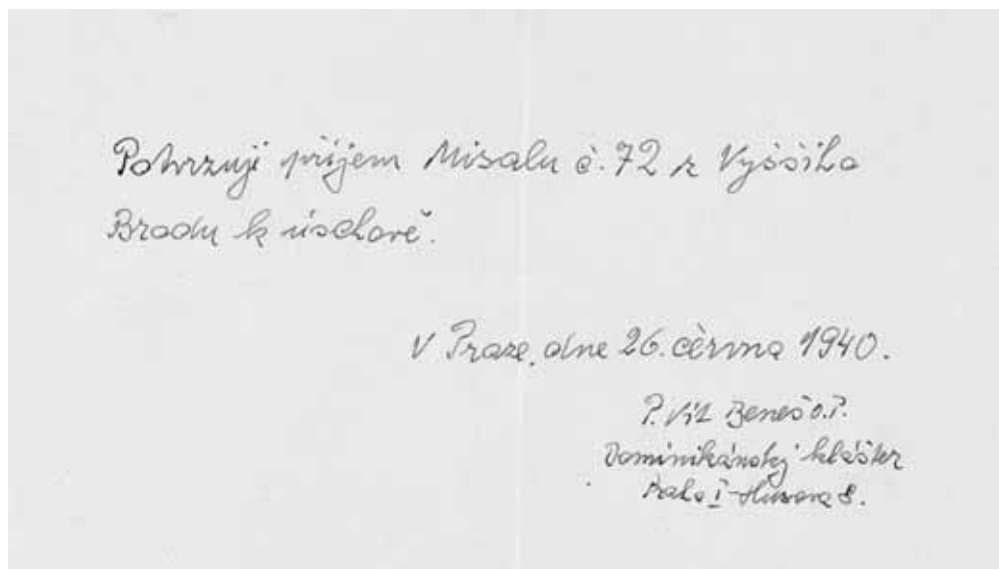 Potvrzuji příjem Misalu č. 72 z Vyššího
Brodu k úschově.
V Praze, dne 26. června 1940.
P. Vít Beneš O.P.
Dominikánský klášter
Praha I-Husova 8.